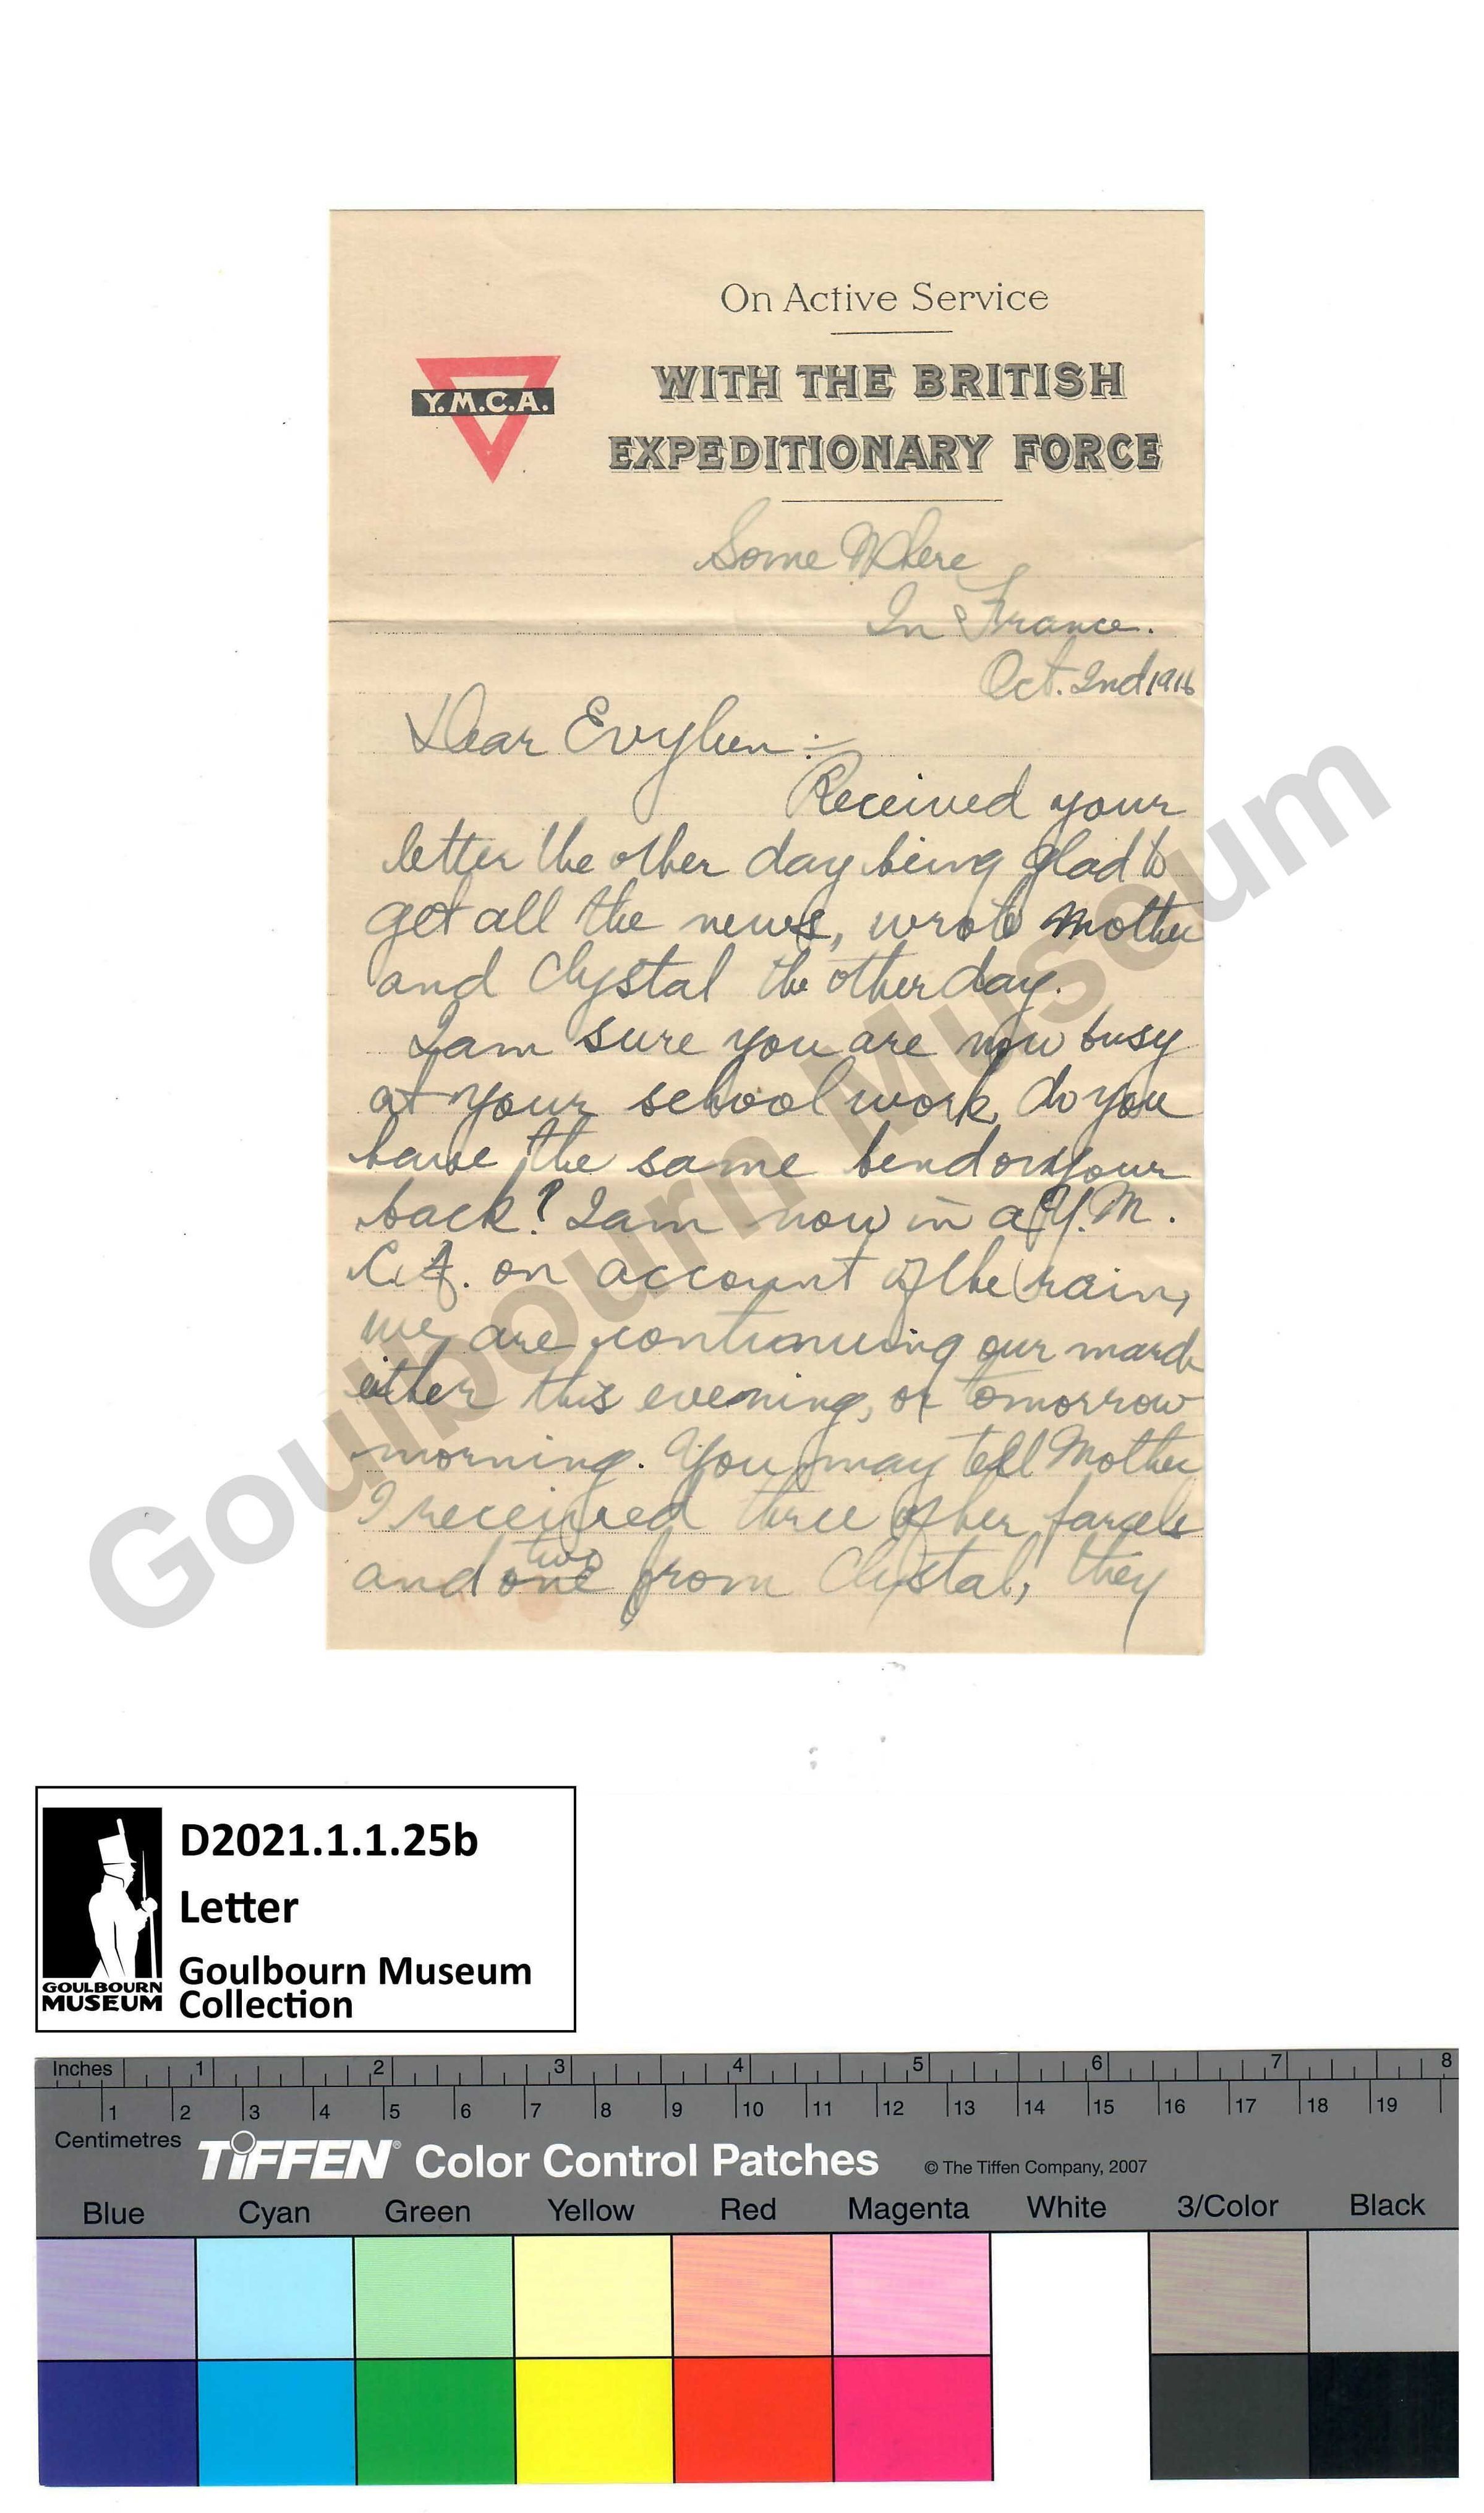 On Active Service
Y.M.C.A.
WITH THE BRITISH
EXPEDITIONARY FORCE
Some Where
In France.
Oct. 2nd 1916
Dear Evylien :-
Received your
letter the other day being glad to
get all the news, wrote Mother
and Chystal the other day.
I am sure you are now busy
at your school work, do you
have the same bend on your
back? I am now in a Y.M.
C.A. on account of the rain,
we are continuing our march
either this evening, or tomorrow
morning. You may tell Mother
I received three of her parcels
and one two from Chystal, they
Goulbourn Museum
D2021.1.1.25b
Letter
Goulbourn Museum
Collection
GOULBOURN
MUSEUM
Inches 1 2 3 4 5 6 7 8
1 2 3 4 5 6 7 8 9 10 11 12 13 14 15 16 17 18 19
Centimetres
TIFFEN® Color Control Patches © The Tiffen Company, 2007
Blue Cyan Green Yellow Red Magenta White 3/Color Black